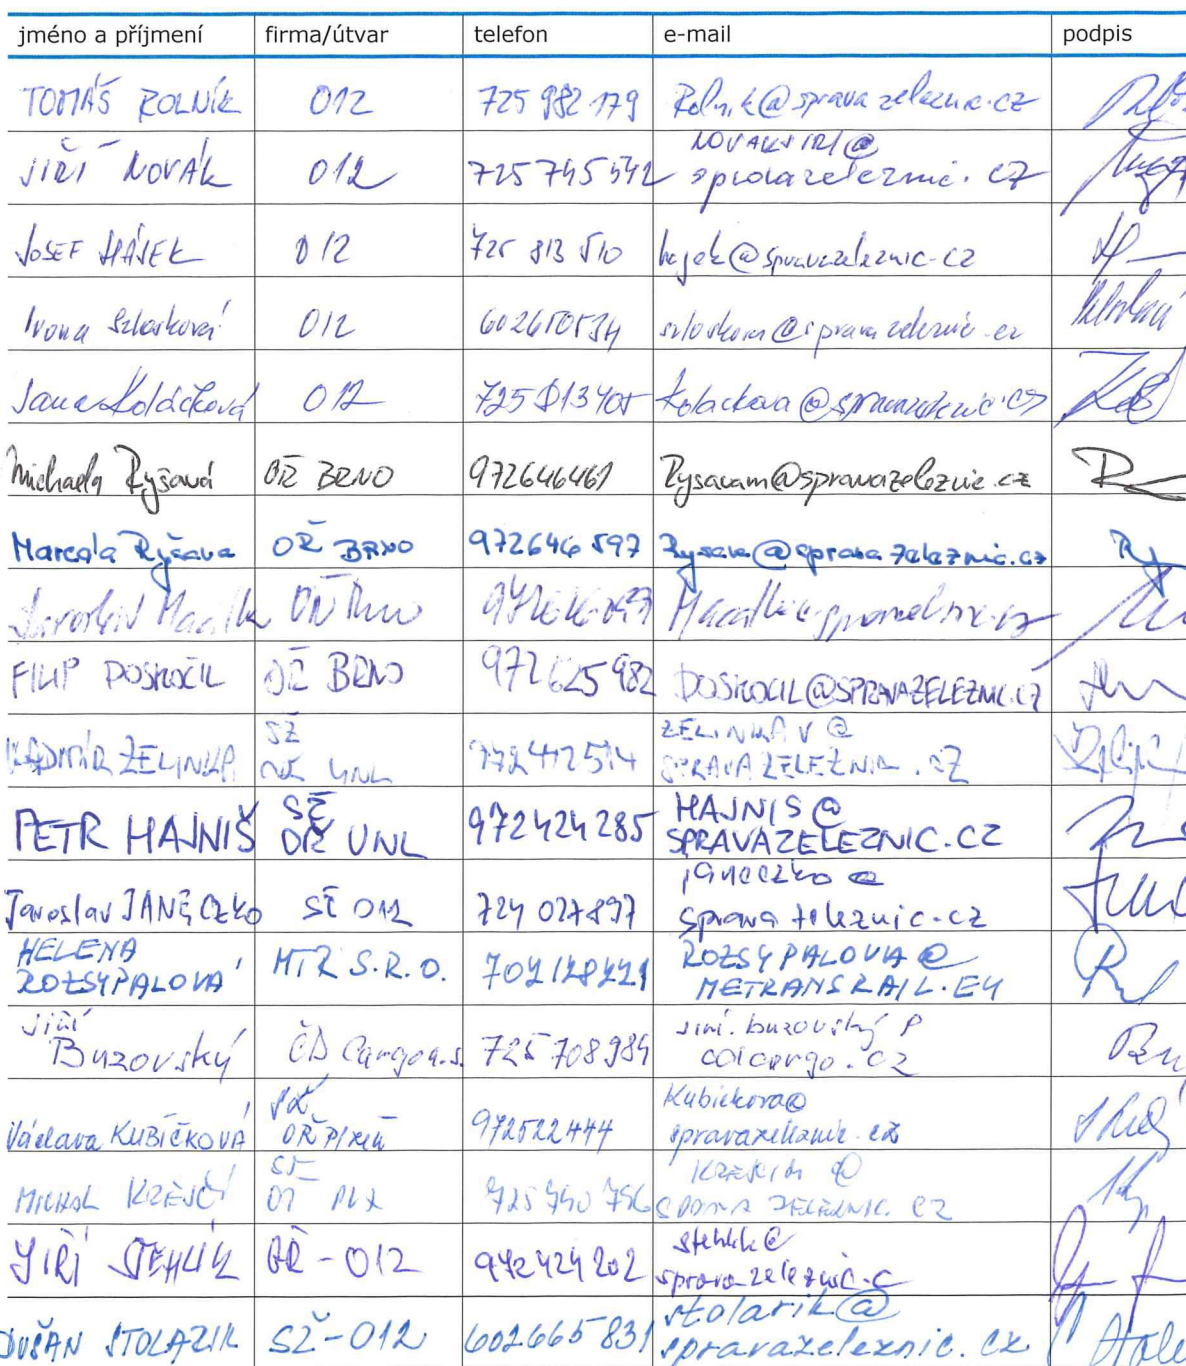 jméno a příjmení firma/útvar telefon e-mail podpis
TOMÁŠ ROLNÍK 012 725 982 179 Rolnik@spravazeleznic.cz
JIŘÍ NOVÁK 012 725 745 542 NOVAKJIRI@
spravazeleznic.cz
JOSEF HÁJEK 012 725 813 510 hajek@spravazeleznic.cz
Ivona Szlosková 012 602610534 @spravazeleznic.cz
Jana Koláčková 012 725 813 405 kolackova@spravazeleznic.cz
Michaela Ryšavá OŘ BRNO 972646461 Rysavam@spravazeleznic.cz
Marcela Ryšava OŘ BRNO 972646597 Rysava@spravazeleznic.cz
Jaroslav OŘ Brno
FILIP DOSKOČIL OŘ BRNO 972625982 DOSKOCIL@SPRAVAZELEZNIC.CZ
VLADIMÍR ZELINKA SŽ
OŘ UNL 972412514 ZELINKAV@
SPRAVAZELEZNIC.CZ
PETR HAJNIŠ SŽ
OŘ UNL 972424285 HAJNIS@
SPRAVAZELEZNIC.CZ
Jaroslav JANĚCZKO SŽ 012 724 027897 janeczko@
spravazeleznic.cz
HELENA
ROZSYPALOVÁ MTR S.R.O. 702128221 ROZSYPALOVA@
METRANSRAIL.EU
Jiří
Buzovský ČD Cargo a.s. 725 708 984 Jiri.buzovský
cdcargo.cz
Václava KUBÍČKOVÁ SŽ
OŘ Plzeň 972522444 Kubickova@
spravazeleznic.cz
MICHAL KREJČÍ SŽ
PLZ 725 940 756 @
SPRAVAZELEZNIC.CZ
JIŘÍ STEHLÍK OŘ-012 972424202 stehlik@
spravazeleznic.c
DUŠAN STOLARIK SŽ-012 602665831 stolarik@
spravazeleznic.cz